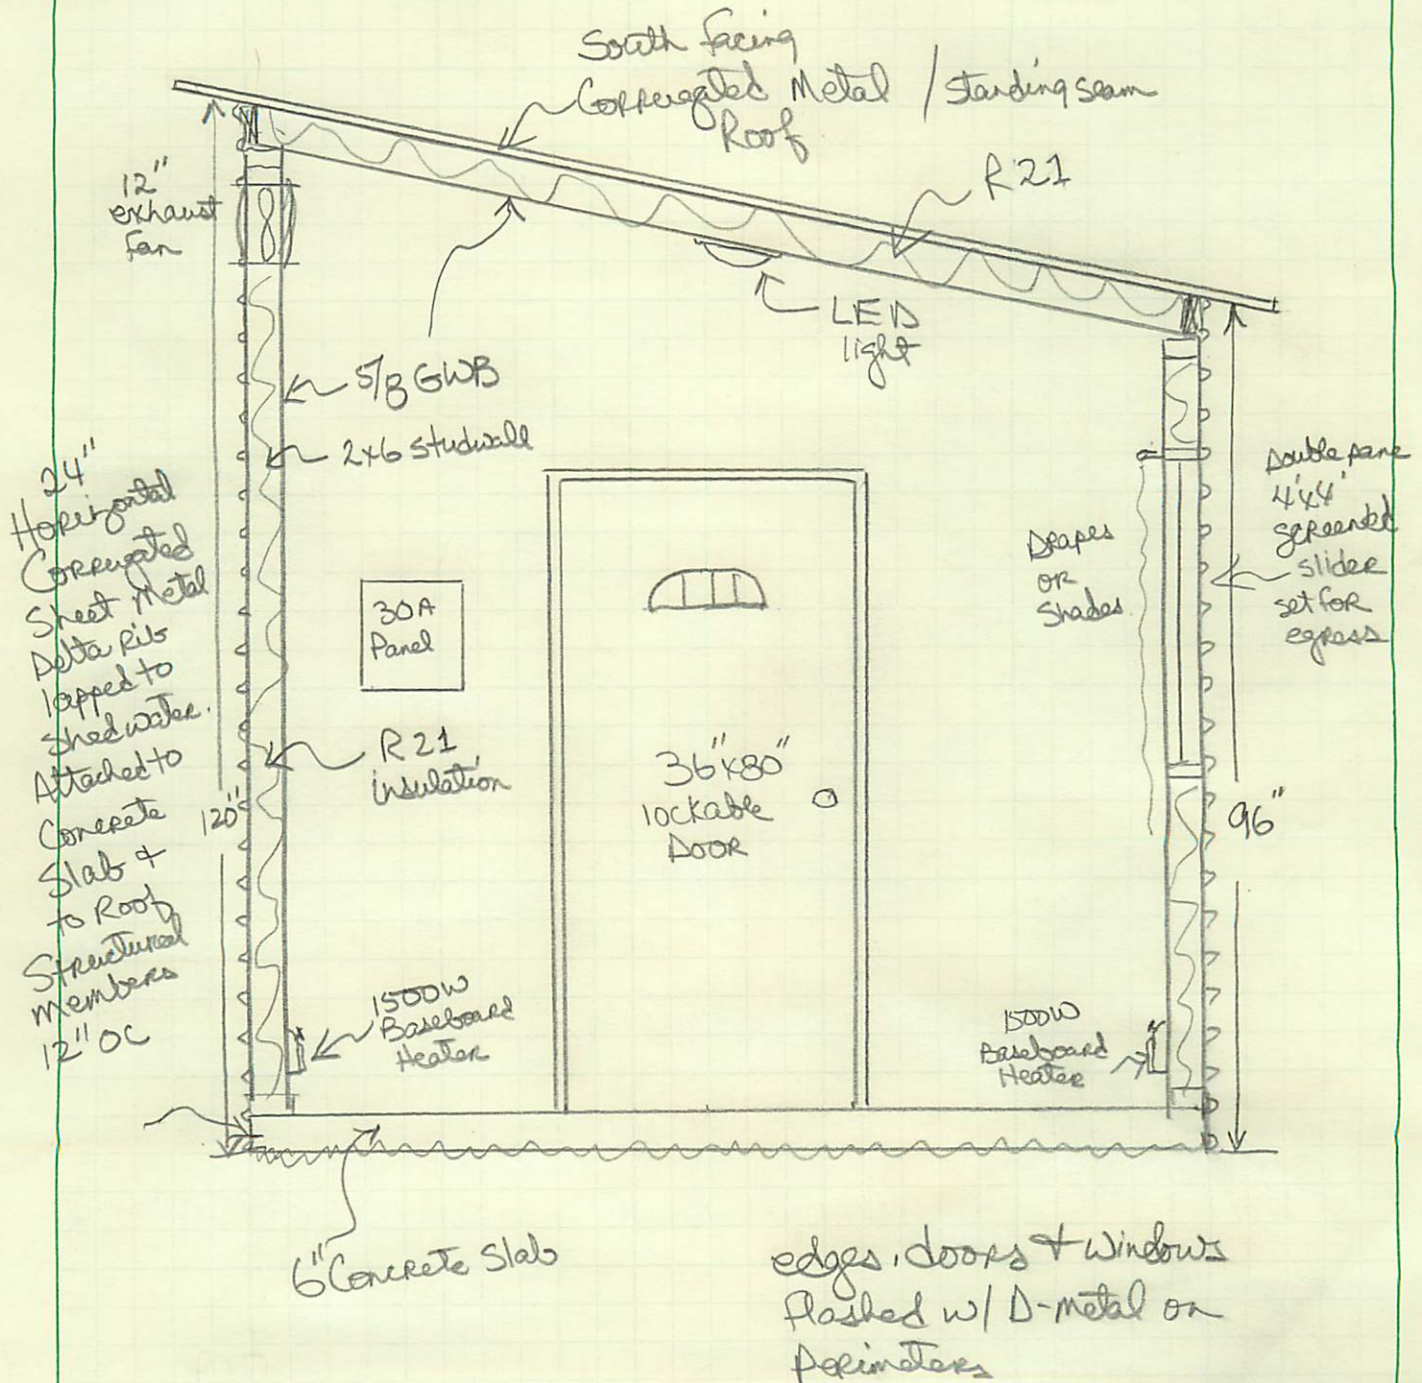 South facing
Corrugated Metal / standing seam
Roof
R 21
12"
exhaust
fan
LED
light
5/8 GWB
2x6 studwall
24"
Horizontal
Corrugated
Sheet Metal
Delta Rib
lapped to
shed water.
Attached to
Concrete
Slab +
to Roof
Structural
members
12" OC
120"
30A
Panel
R 21
insulation
36"x80"
lockable
Door
Drapes
OR
Shades
Double pane
4'x4'
screened
slider
set for
egress
96"
1500W
Baseboard
Heater
1500W
Baseboard
Heater
6" Concrete Slab
edges, doors + windows
flashed w/ D-metal on
perimeters